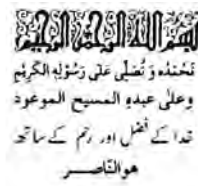 بسم اللہ الرحمن الرحیم
نحمدہ و نصلی علی رسولہ الکریم
وعلی عبدہ المسیح الموعود
خدا کے فضل اور رحم کے ساتھ
ھوالناصر